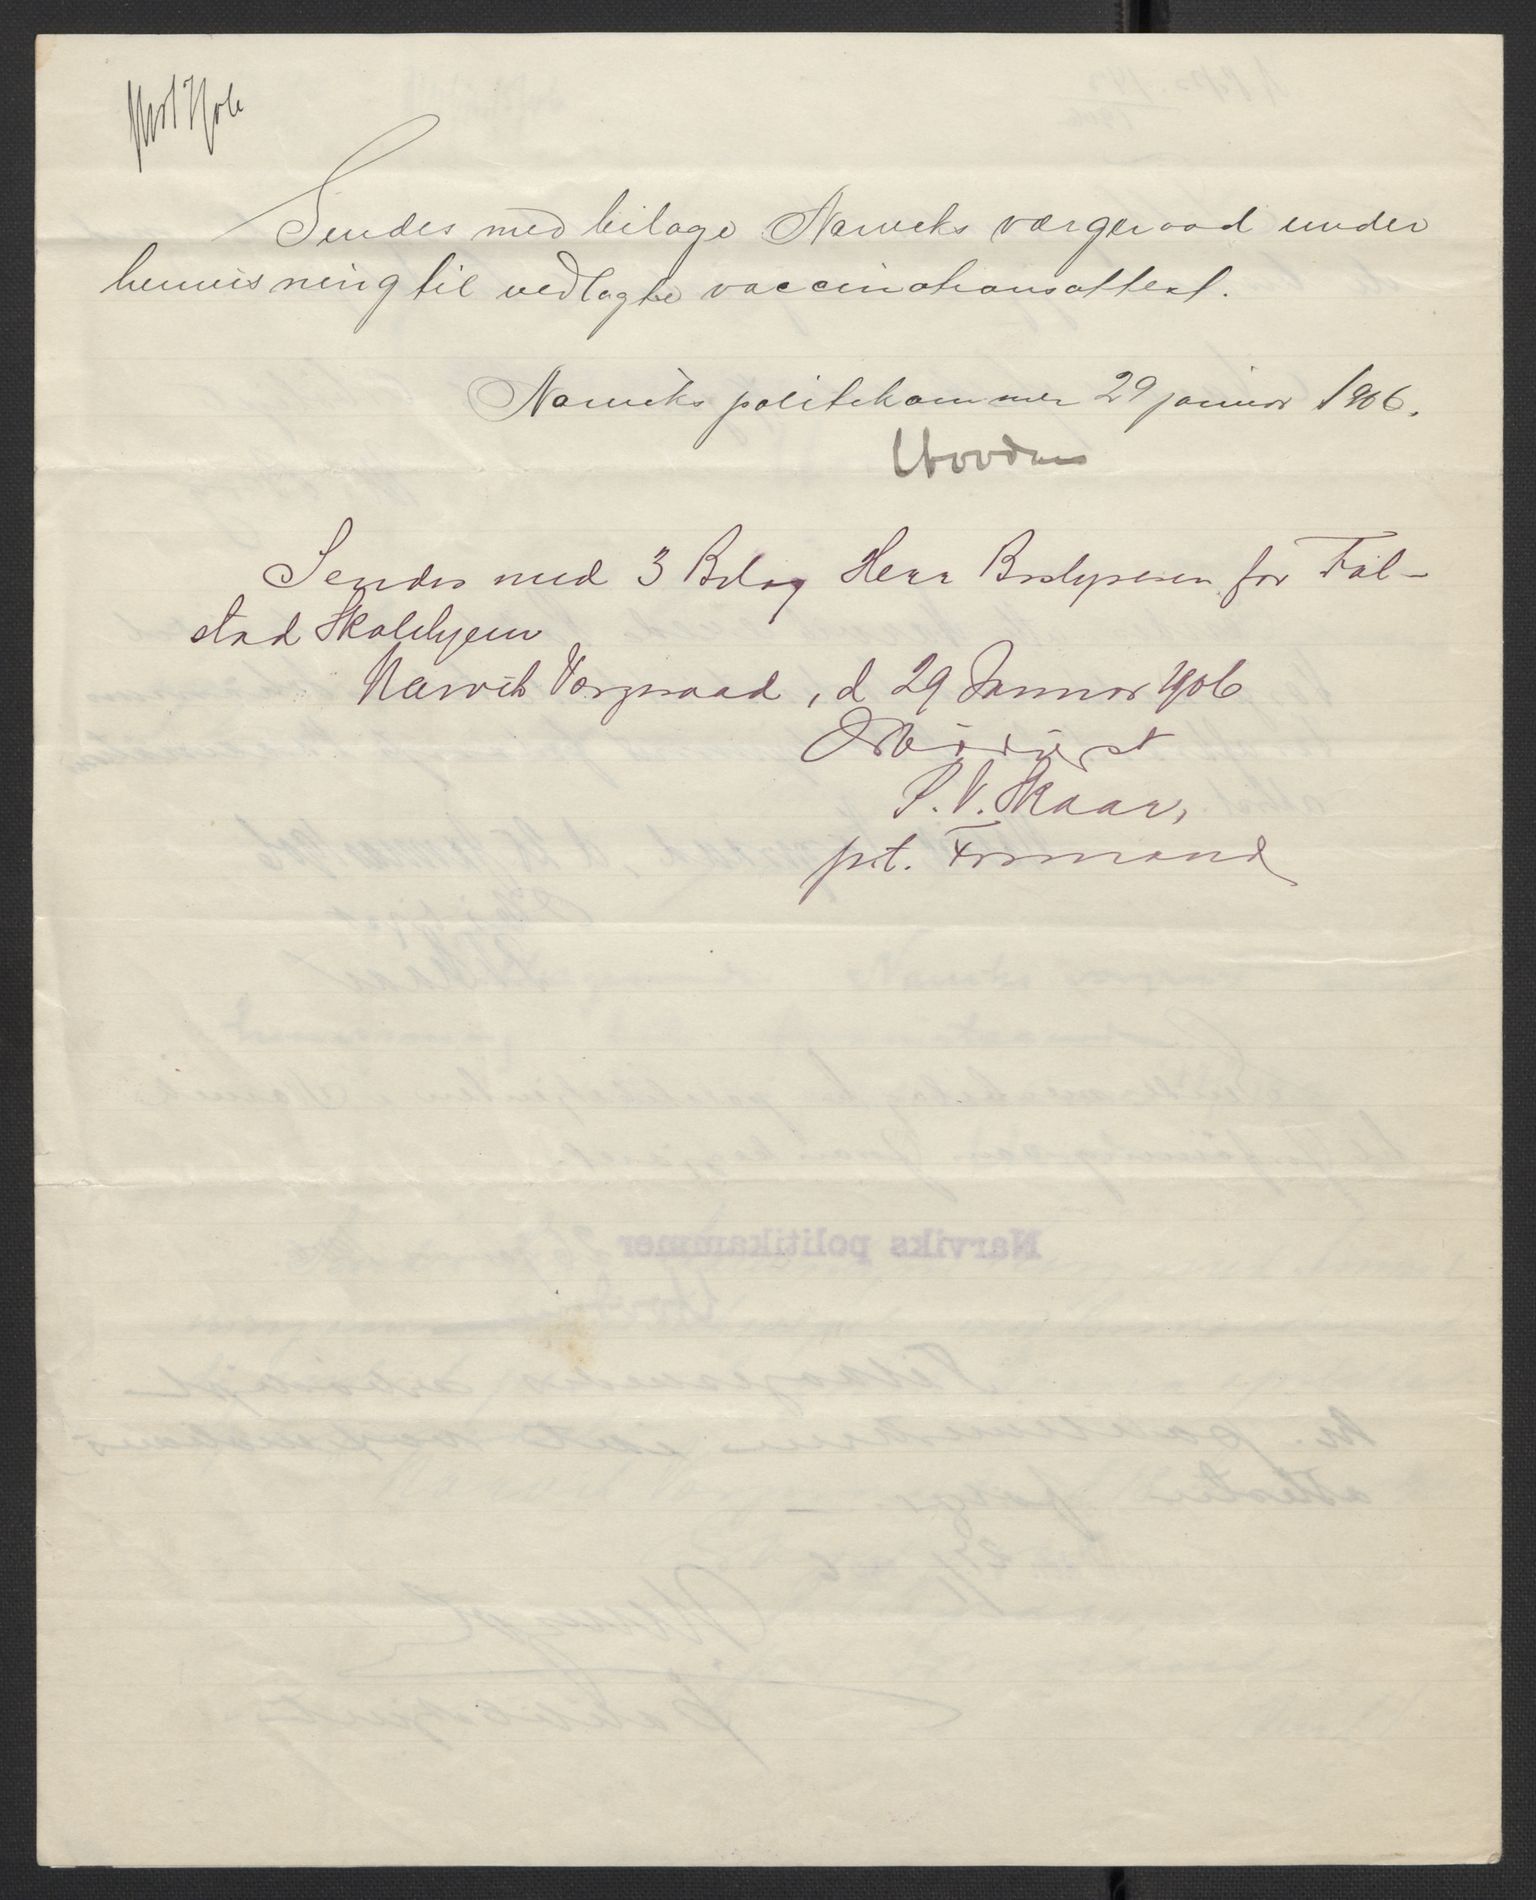 Sendes med bilage Narviks værgeraad under
henvisning til vedlagte vaccinationsattest.
Narviks politikammer 29 januar 1906.
Sendes med 3 Bilag Herr Bestyreren for Fal-
stad Skolehjem
Narvik Værgeraad, d 29 Januar 1906
Ærbødigst
P. V. Skaar,
p.t. Formand
Narviks politikammer